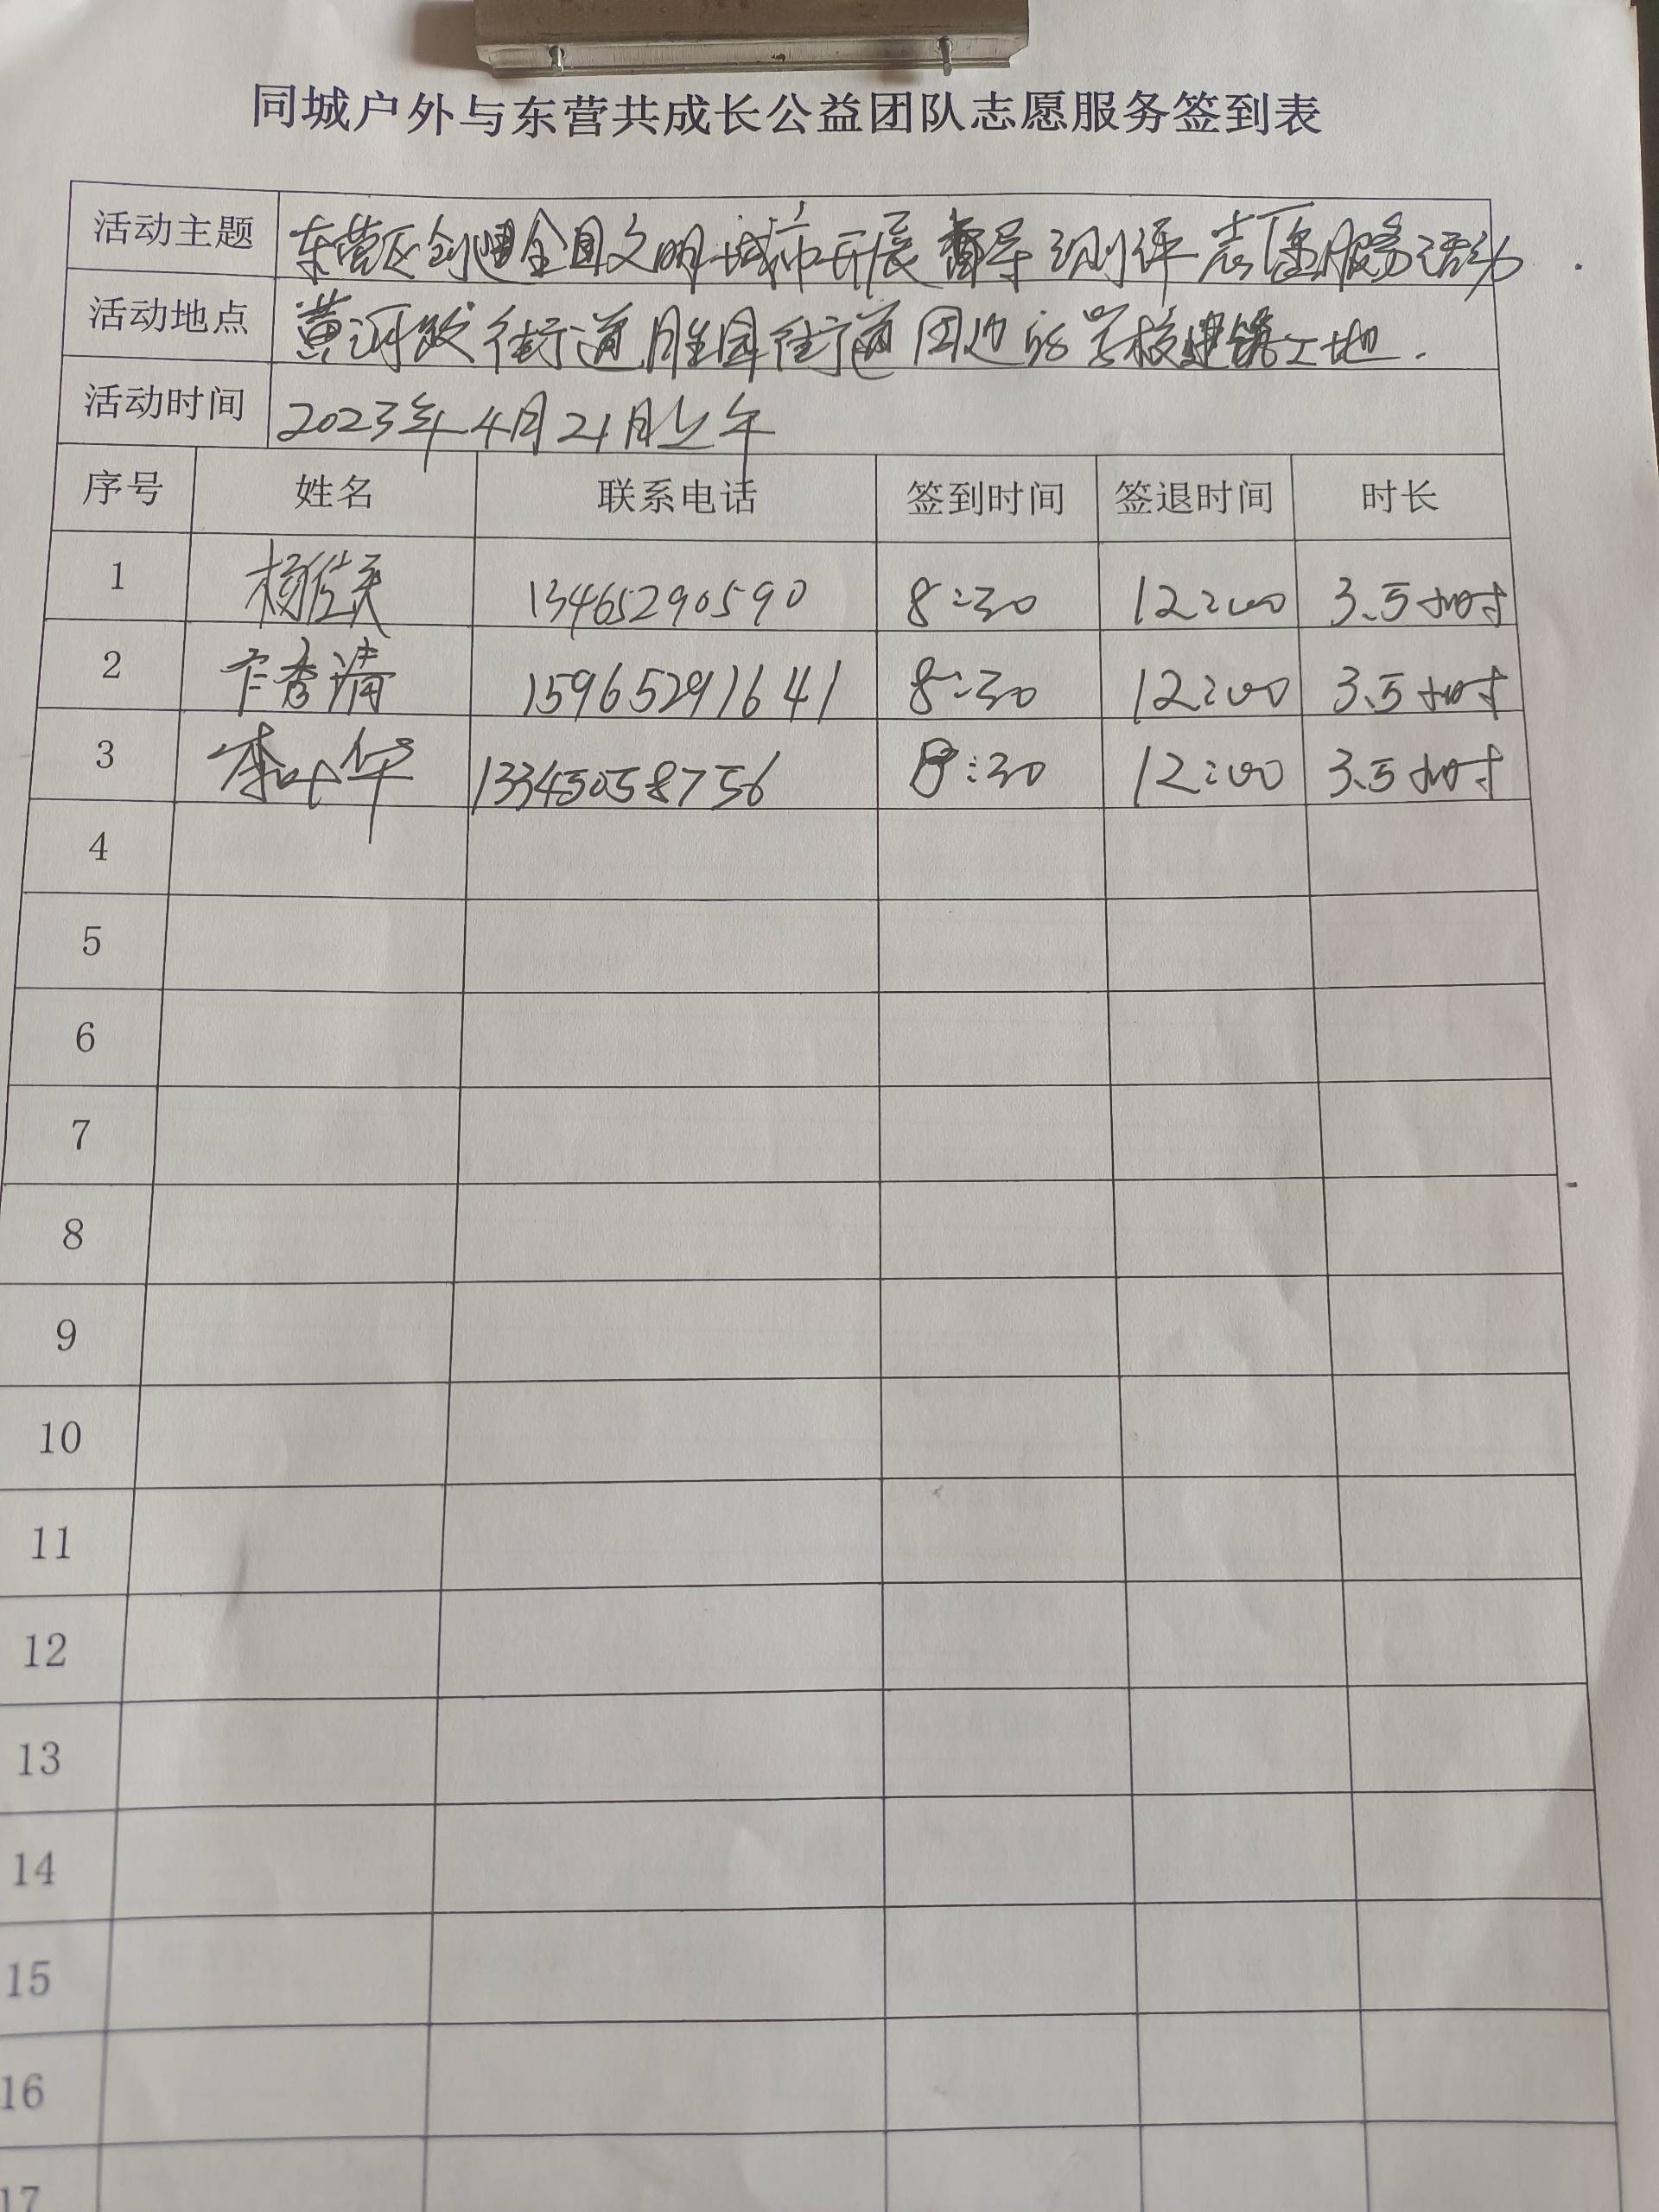 同城户外与东营共成长公益团队志愿服务签到表
活动主题 东营区创建全国文明城市开展督导测评志愿服务活动.
活动地点 黄河路街道胜园街道周边的学校建筑工地.
活动时间 2023年4月21日上午
序号 姓名 联系电话 签到时间 签退时间 时长
1 杨 13465290590 8:30 12:00 3.5小时
2 香清 15965291641 8:30 12:00 3.5小时
3 李叶华 13345058756 8:30 12:00 3.5小时
4
5
6
7
8
9
10
11
12
13
14
15
16
17